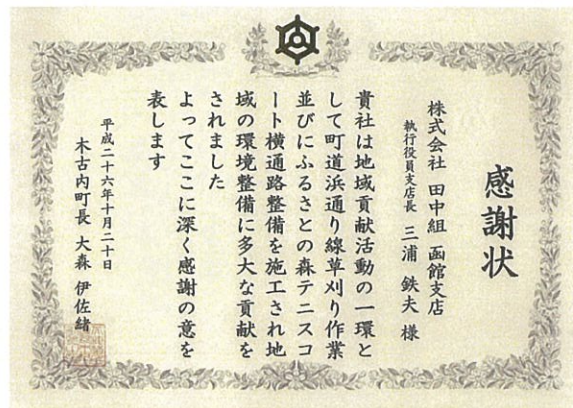 感謝状
株式会社 田中組 函館支店
執行役員支店長 三浦 鉄夫 様
貴社は地域貢献活動の一環と
して町道浜通り線草刈り作業
並びにふるさとの森テニスコ
ート横通路整備を施工され地
域の環境整備に多大な貢献を
されました
よってここに深く感謝の意を
表します
平成二十六年十月二十日
木古内町長 大森 伊佐緒